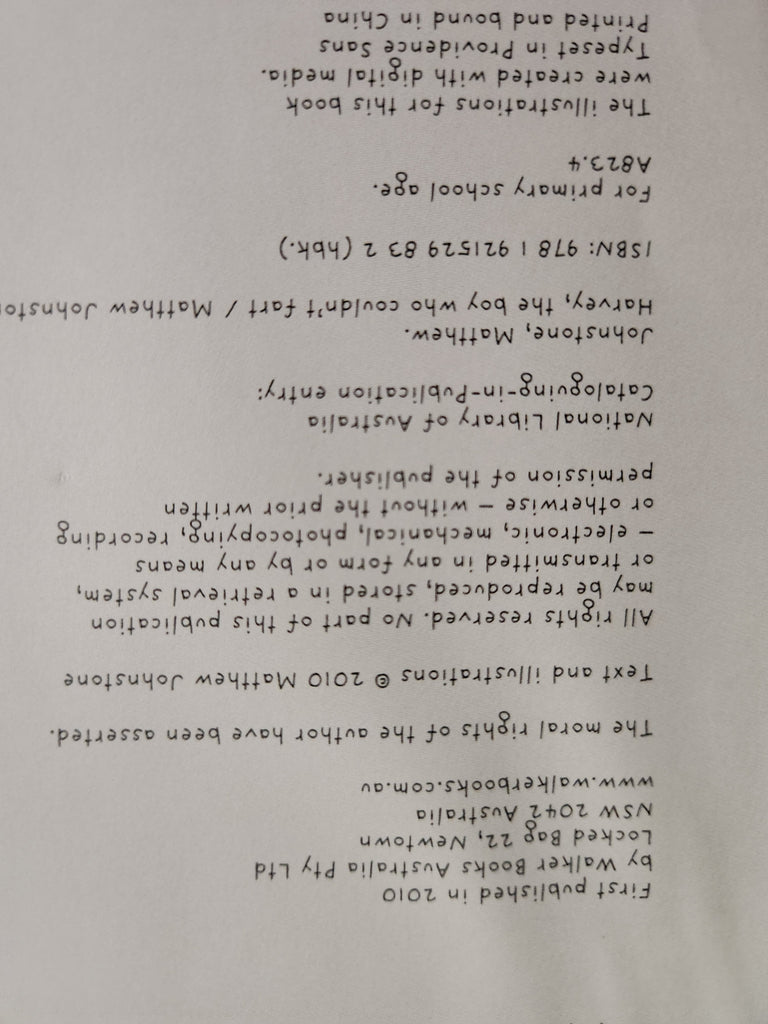 First published in 2010
by Walker Books Australia Pty Ltd
Locked Bag 22, Newtown
NSW 2042 Australia
www.walkerbooks.com.au
The moral rights of the author have been asserted.
Text and illustrations © 2010 Matthew Johnstone
All rights reserved. No part of this publication
may be reproduced, stored in a retrieval system,
or transmitted in any form or by any means
– electronic, mechanical, photocopying, recording
or otherwise – without the prior written
permission of the publisher.
National Library of Australia
Cataloguing-in-Publication entry:
Johnstone, Matthew.
Harvey, the boy who couldn't fart / Matthew
ISBN: 978 1 921529 83 2 (hbk.)
For primary school age.
A823.4
The illustrations for this book
were created with digital media.
Typeset in Providence Sans
Printed and bound in China